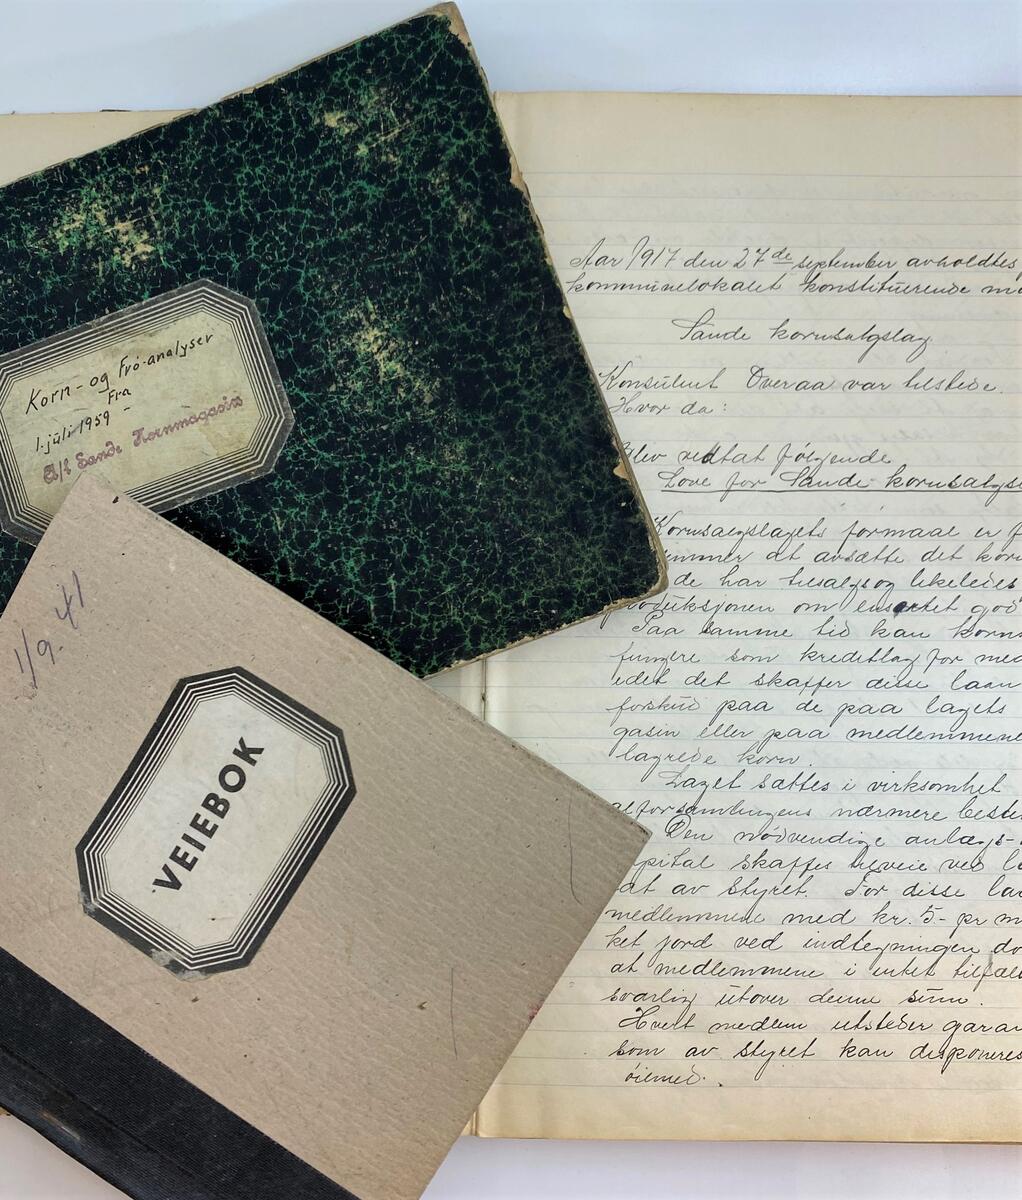 Korn- og Frö-analyser
Fra
1. juli 1959 -
A/L Sande Kornmagasin
1/9. 41
VEIEBOK
Aar 1917 den 27de september avholdtes
kommunelokalet konstituerende
Sande kornsalgslag.
Konsulent Overaa var tilstede.
Hvor da:
Blev vedtat følgende
Love for Sande kornsalgs
Kornsalgslagets formaal er
at avsætte det korn
de har tilsalgs og likeledes
produksjonen om ensartet god
Paa samme tid kan korns
fungere som kreditlag for med
idet det skaffer disse laan
forskud paa de paa lagets
gasin eller paa medlemmene
lagrede korn.
Laget sættes i virksomhet
forsamlingens nærmere beste
Den nødvendige anlægs-
pital skaffes tilveie ved
at av styret. For disse laa
medlemmene med kr. 5- pr m
ket jord ved indtegningen
at medlemmene i intet tilfæl
svarlig utover denne sum.
Hvert medlem utsteder garan
som av styret kan disponeres
øiemed.